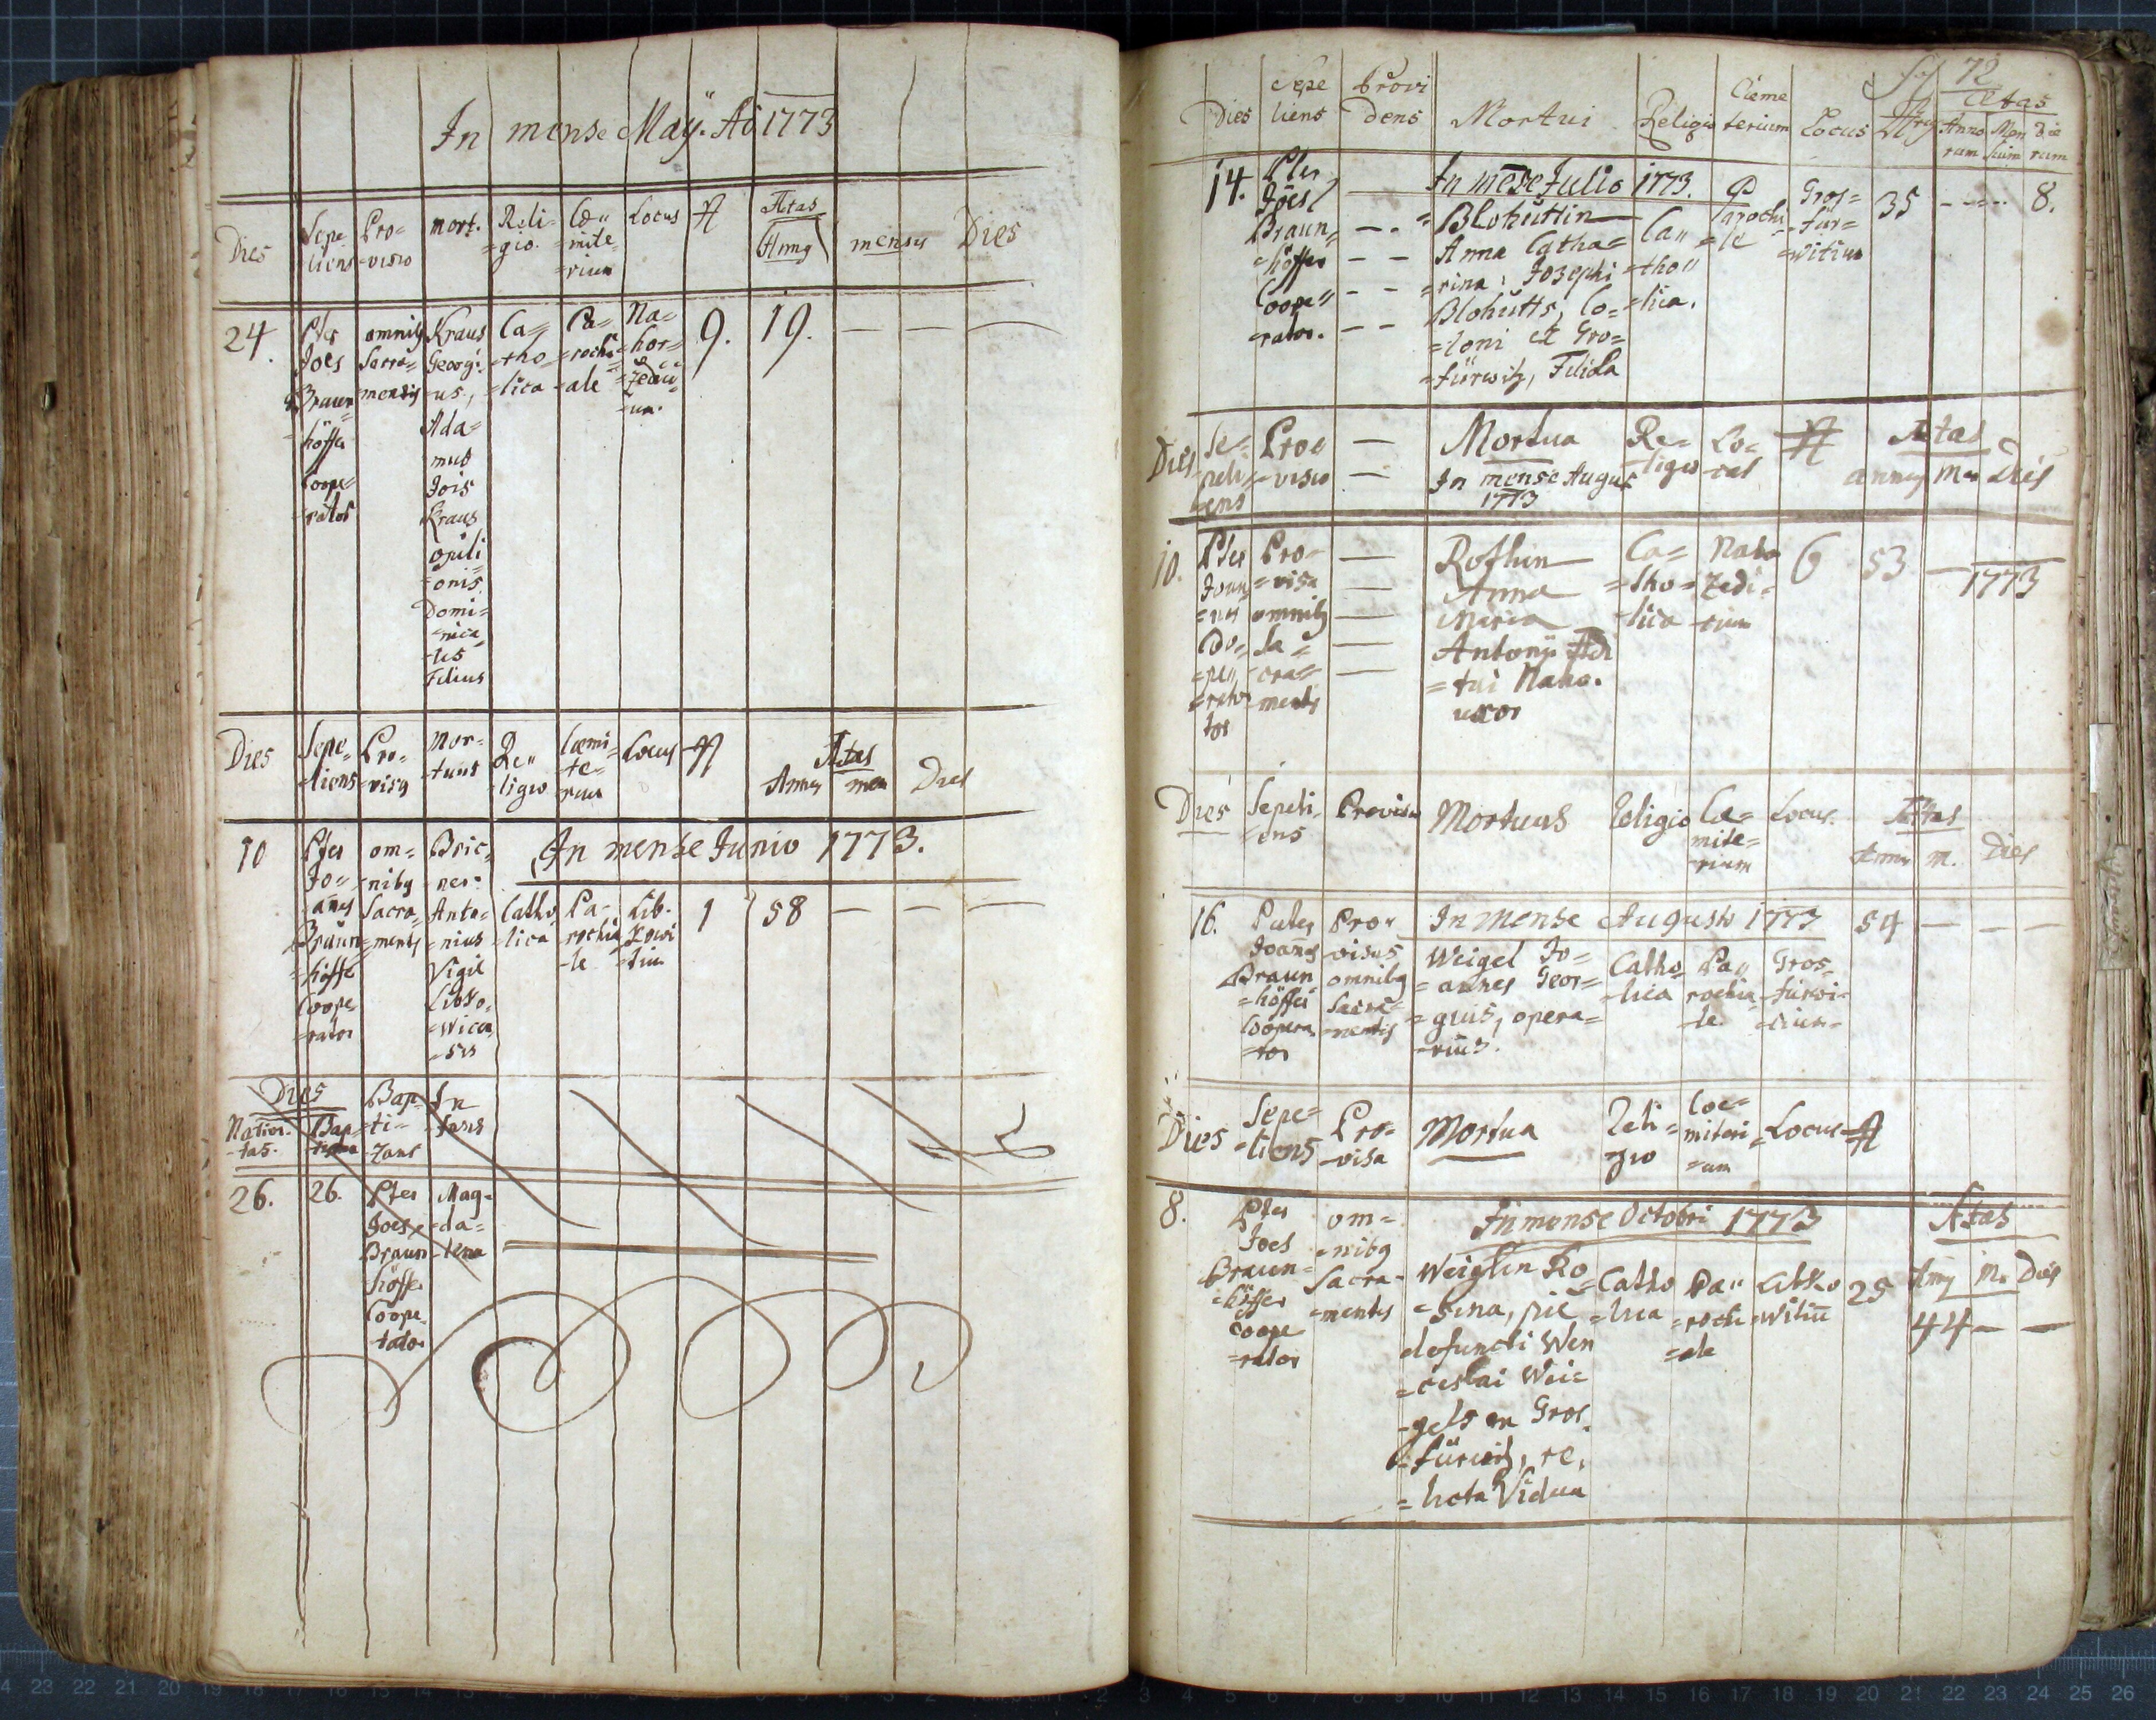 In mense Maÿ. Aõ 1773
Dies
Sepe-
liens
Pro-
=visio
mort.
Reli-
=gio.
Cœ"
=mite-
=rium
Locus
N
Ætas
Anny
menses
Dies
24.
Pter
Joes
Braun
=höffer
Coope-
=rator
omnibg
Sacra=
mentis
Kraus
Georgi-
=us,
Ada=
mus
Jois
Kraus
opili
=onis
Domi=
=nica
=lis
Filius
Ca=
=tho
=lica
Pa-
=rochi
=ale
Na=
=hor=
=zedi
=um.
9.
19.
— — —
Dies
Sepe-
=liens
Pro-
=visg
Mor-
=tuus
Re"
=ligio
Cœmi=
=te-
=rium
Locus
N
Ætas
Annus men Dies
In mense Junio 1773.
10
Pter
Jo=
=anes
Braun
=höffer
Coope-
=rator
om=
=nibg
Sacra=
=mentis
Bric-
=ner
Anto=
=nius
Vigil
Libko.
=wicen
=sis
Catho
=lica
Pa-
rochia
=le
Lib-
kowi
=tium
1
58
— — —
Dies
Nativi-
=tas.
Bap-
Bap-
=ti-
=zans
In
=fans
26.
26.
Pter
Joes
Braun
=höffer
Coope-
rator
Mag-
=da=
=lena
72
Dies
Sepe
liens
Provi
dens
Mortui
Religio
Cœme
terium
Locus
Ætas
Anno
rum
Men
sium
Die
rum
In mese Julio 1773.
14.
Pter
Joes
Braun
=höffer
Coope"
=rator.
Blohuttin
Anna Catha=
=rina: Josephi
Blohutts, Co=
=loni ex Gro=
=türwitz, Filiola
Ca"
=tho"
=lica.
Parochi
=le
Gros=
=tür=
=witium
35
— — 8.
Dies
Se-
peli
=ens
Pro
=visio
Mortua
In mense Augus
1773
Re=
=ligio
Lo-
=cus
N
Ætas
annus Men Dies
10.
Pter
Joan
=nes
Co=
=pe"
=rato
tor
Pro-
=visa
omnibg
Sa=
=cra=
=mentis
Rothin
Anna
Maria
Antonij
=tui Naho.
uxor
Ca=
=tho=
=lica
Naho
zedi=
=tium
6
53
— 1773
Dies
Sepeli-
=ens
Provisus
Mortuus
Religio
Cœ=
mite=
=rium
Locus.
Ætas
Annus m. Dies
In Mense Augusto 1773
16.
Pater
Joanes
Braun
=höffer
Coopera
=tor
Pro"
visus
omnibg
Sacra=
=mentis
Weigel Jo=
=annes Geor=
=gius, opera=
=rius.
Catho
=lica
Pa"
rochia
=le.
Gros-
=türwi-
=tium-
54
— — —
Dies
Sepe=
=liens
Pro-
=visa
Mortua
Reli=
=gio
Cœ=
miteri
=um
Locus
N
In mense Octobri 1773
8.
Pter
Joes
Braun=
=höffer
Coope
=rator
om=
=nibg
Sacra-
=mentis
Weiglin Ro
=sina, pie
defuncti Wen
=ceslai Wei=
=gels ex Gros
=türwitz, re,
=licta Vidua
Catho
=lica
Pa"
=rochi
=ale
Libko
=witiu
25
Ætas
Anny M. Dies
44 — —